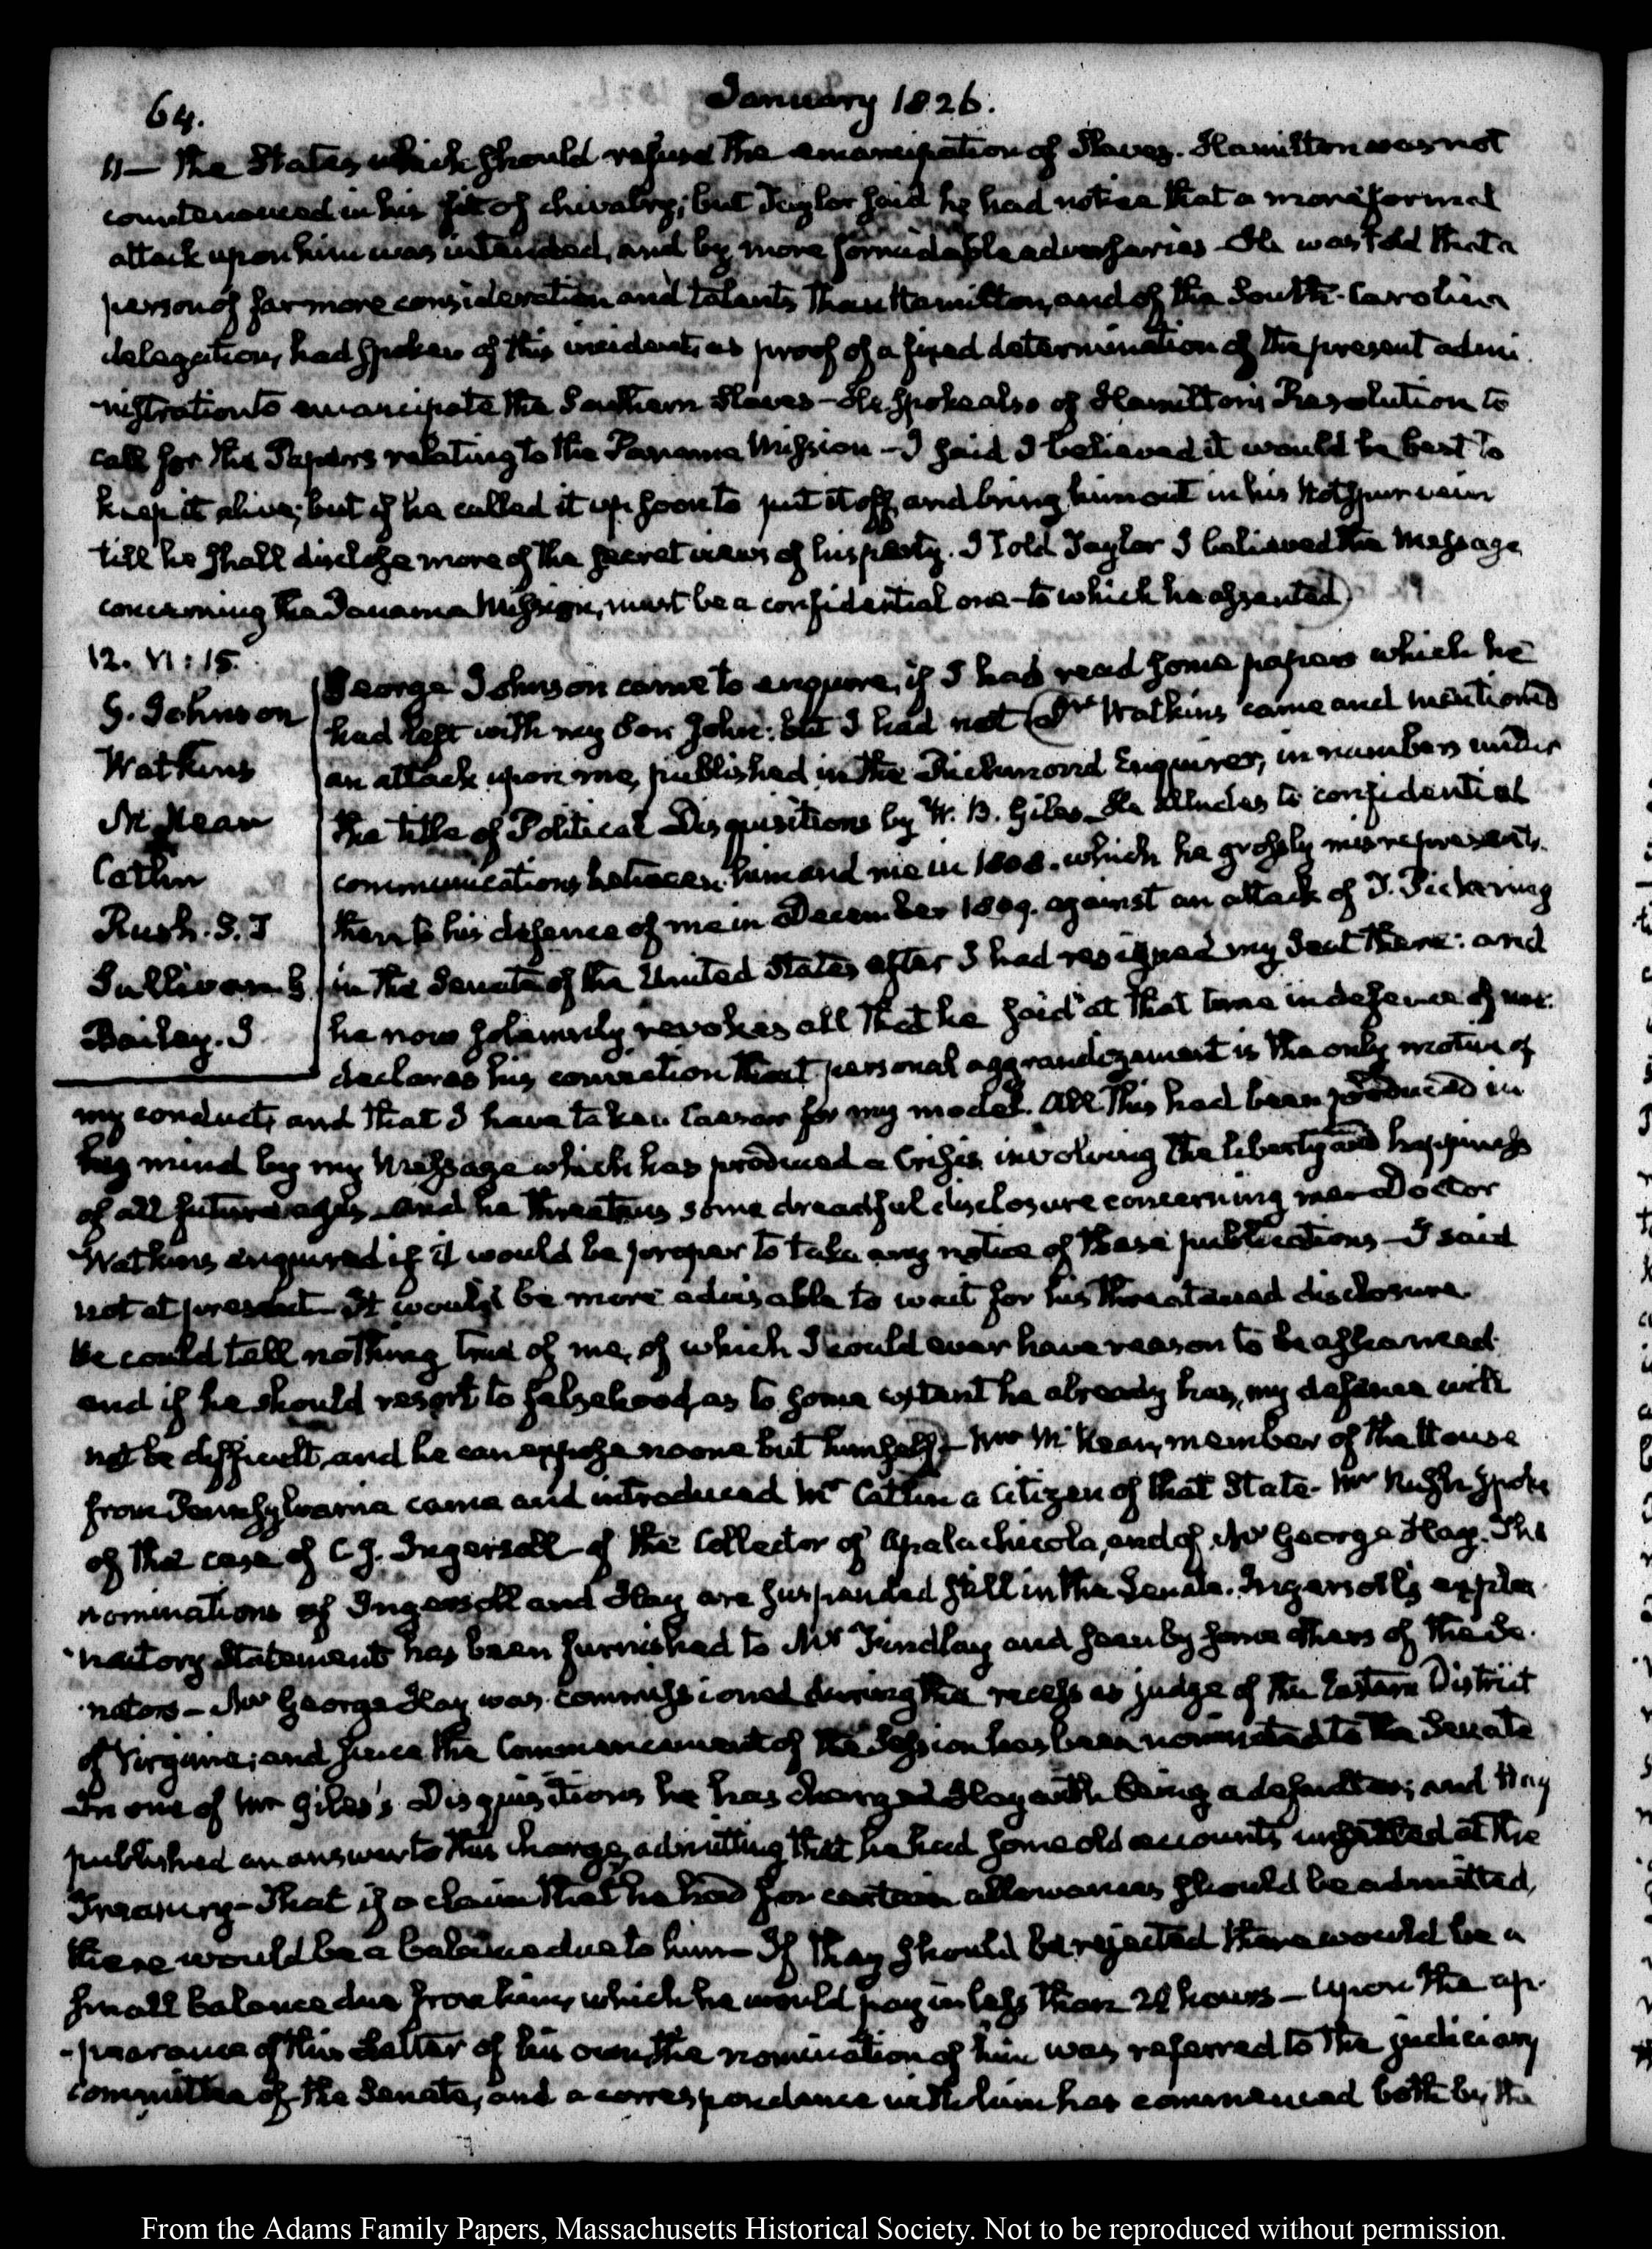 64.
January 1826.
11— the States which should refuse the emancipation of Slaves. Hamilton was not
countenanced in his fit of chivalry; but Taylor said he had notice that a more formal
attack upon him was intended, and by more formidable adversaries—He was told that a
person of far more consideration and talents than Hamilton, and of the South-Carolina
delegation, had spoken of this incident, as proof of a fixed determination of the present admi-
-nistration to emancipate the Southern Slaves—He spoke also of Hamilton's Resolution to
call for the Papers relating to the Panama Mission—I said I believed it would be best to
keep it alive; but if he called it up soon to put it off, and bring him out in his Hotspur vein
till he shall disclose more of the secret views of his party. I told Taylor I believed the Message
concerning the Panama Mission, must be a confidential one—to which he assented
12. VI:15.
G. Johnson
Watkins
McKean
Catlin
Rush. S. T
Sullivan. G.
Bailey. J.
George Johnson came to enquire, if I had read some papers which he
had left with my Son John: but I had not (Dr. Watkins came and mentioned
an attack upon me, published in the Richmond Enquirer, in numbers under
the title of Political Disquisitions by W. B. Giles. He alludes to confidential
communications between him and me in 1808. which he grossly misrepresents.
then to his defence of me in December 1809. against an attack of T. Pickering
in the Senate of the United States after I had resigned my Seat there: and
he now solemnly revokes all that he said at that time in defence of me:
declares his conviction that personal aggrandizement is the only motive of
my conduct, and that I have taken Caesar for my model. All this had been produced in
his mind by my Message which has produced a Crisis involving the liberty and happiness
of all future ages—and he threatens some dreadful disclosure concerning me—Doctor
Watkins enquired if it would be proper to take any notice of these publications—I said
not at present—It would be more advisable to wait for his threatened disclosure.
He could tell nothing true of me, of which I could ever have reason to be ashamed.
and if he should resort to falsehood, as to some extent he already has, my defence will
not be difficult, and he can expose no one but himself)—Mr. McKean, member of the House
from Pennsylvania came and introduced Mr. Catlin a Citizen of that State—Mr. Rush spoke
of the case of C. J. Ingersoll—of the Collector of Apalachicola, and of Mr. George Hay. The
nominations of Ingersoll and Hay are suspended still in the Senate. Ingersoll's expla-
-natory Statement has been furnished to Mr. Findlay and seen by some others of the Se-
-nators—Mr. George Hay was commissioned during the recess as judge of the Eastern District
of Virginia; and since the Commencement of the Session has been nominated to the Senate
In one of Mr. Giles's Disquisitions he has charged Hay with being a defaulter; and Hay
published an answer to this charge, admitting that he had some old accounts unsettled at the
Treasury—That if a claim that he had for certain allowances should be admitted,
there would be a balance due to him—If they should be rejected there would be a
small balance due from him, which he would pay in less than 24 hours—Upon the ap-
-pearance of this Letter of his own, the nomination of him was referred to the judiciary
committee of the Senate, and a correspondence with him has commenced both by the
From the Adams Family Papers, Massachusetts Historical Society. Not to be reproduced without permission.